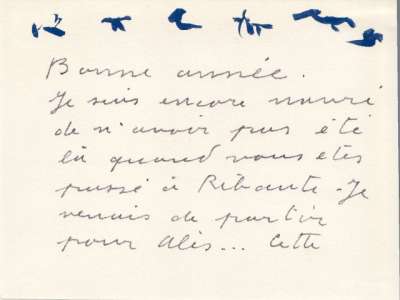 Bonne année.
Je suis encore navré
de n'avoir pas été
là quand vous êtes
passé à Ribaute - Je
venais de partir
pour Alès... Cette